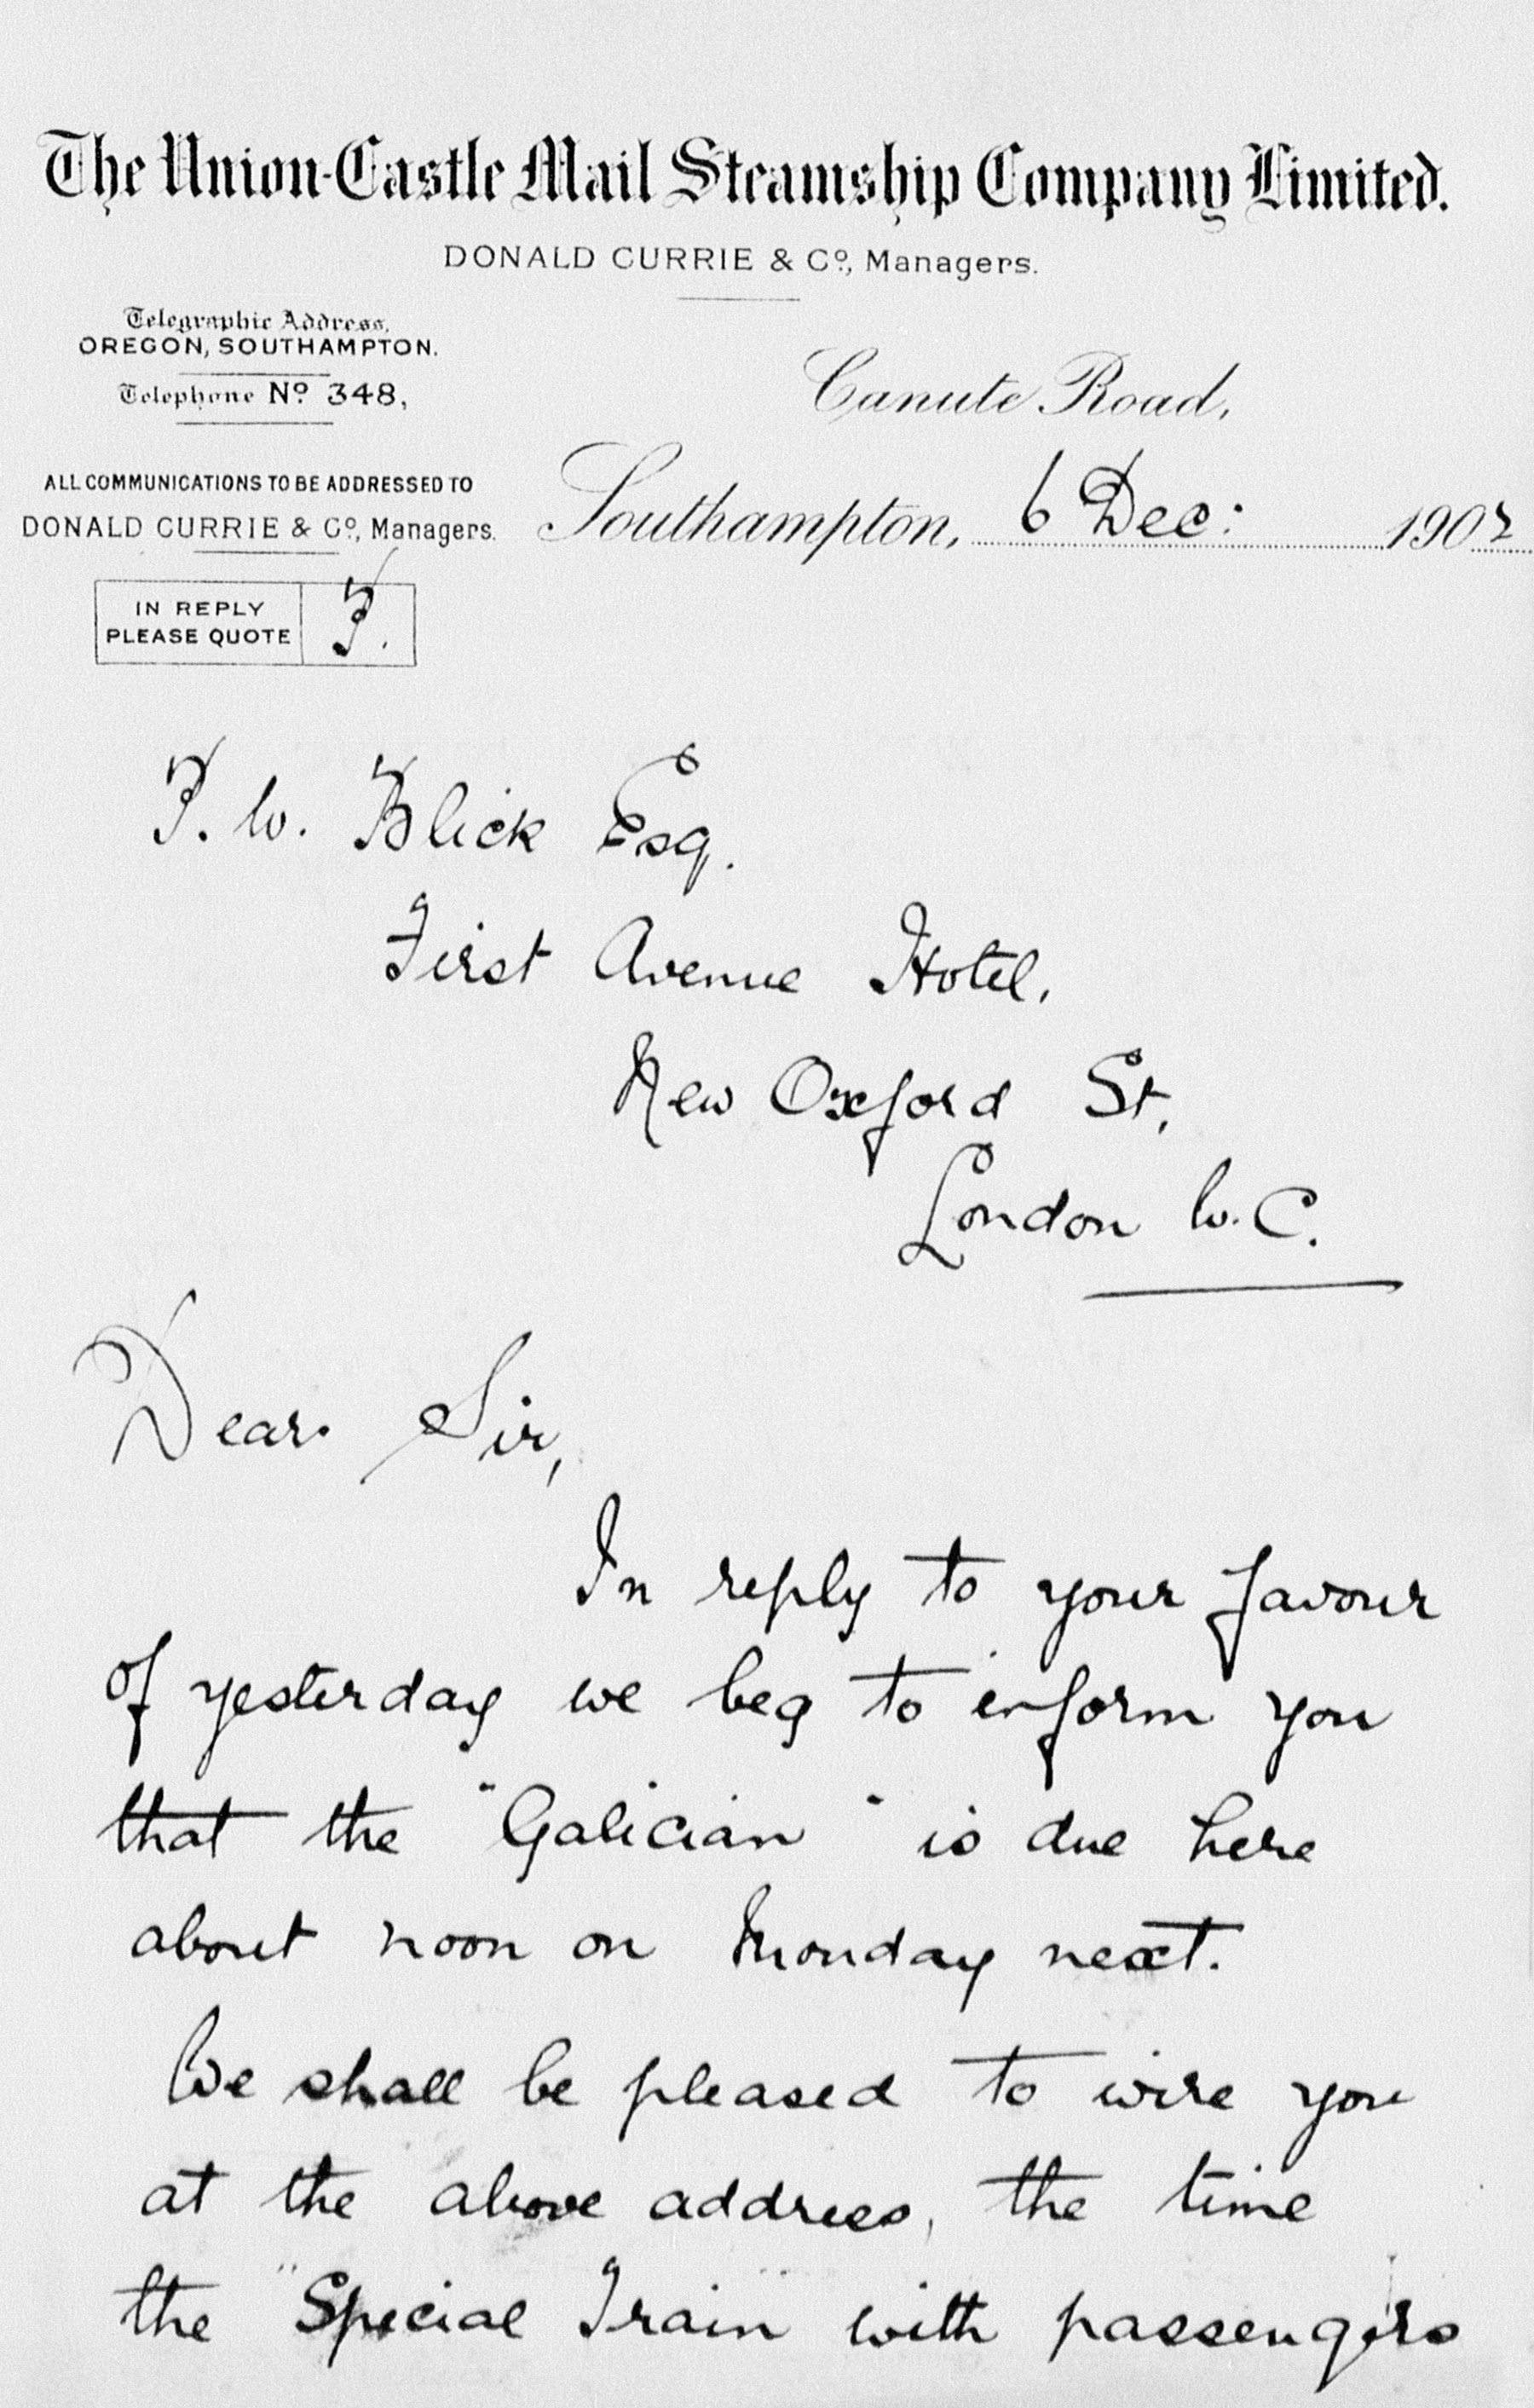 The Union-Castle Mail Steamship Company Limited.
DONALD CURRIE & Cº, Managers.
Telegraphic Address,
OREGON, SOUTHAMPTON.
Telephone Nº 348,
Canute Road,
ALL COMMUNICATIONS TO BE ADDRESSED TO
DONALD CURRIE & Cº, Managers.
Southampton, 6 Dec: 1902
IN REPLY
PLEASE QUOTE
T. W. Blick Esq.
First Avenue Hotel,
New Oxford St,
London W.C.
Dear Sir,
In reply to your favour
of yesterday we beg to inform you
that the "Galician" is due here
about noon on Monday next.
We shall be pleased to wire you
at the above address, the time
the "Special Train" with passengers